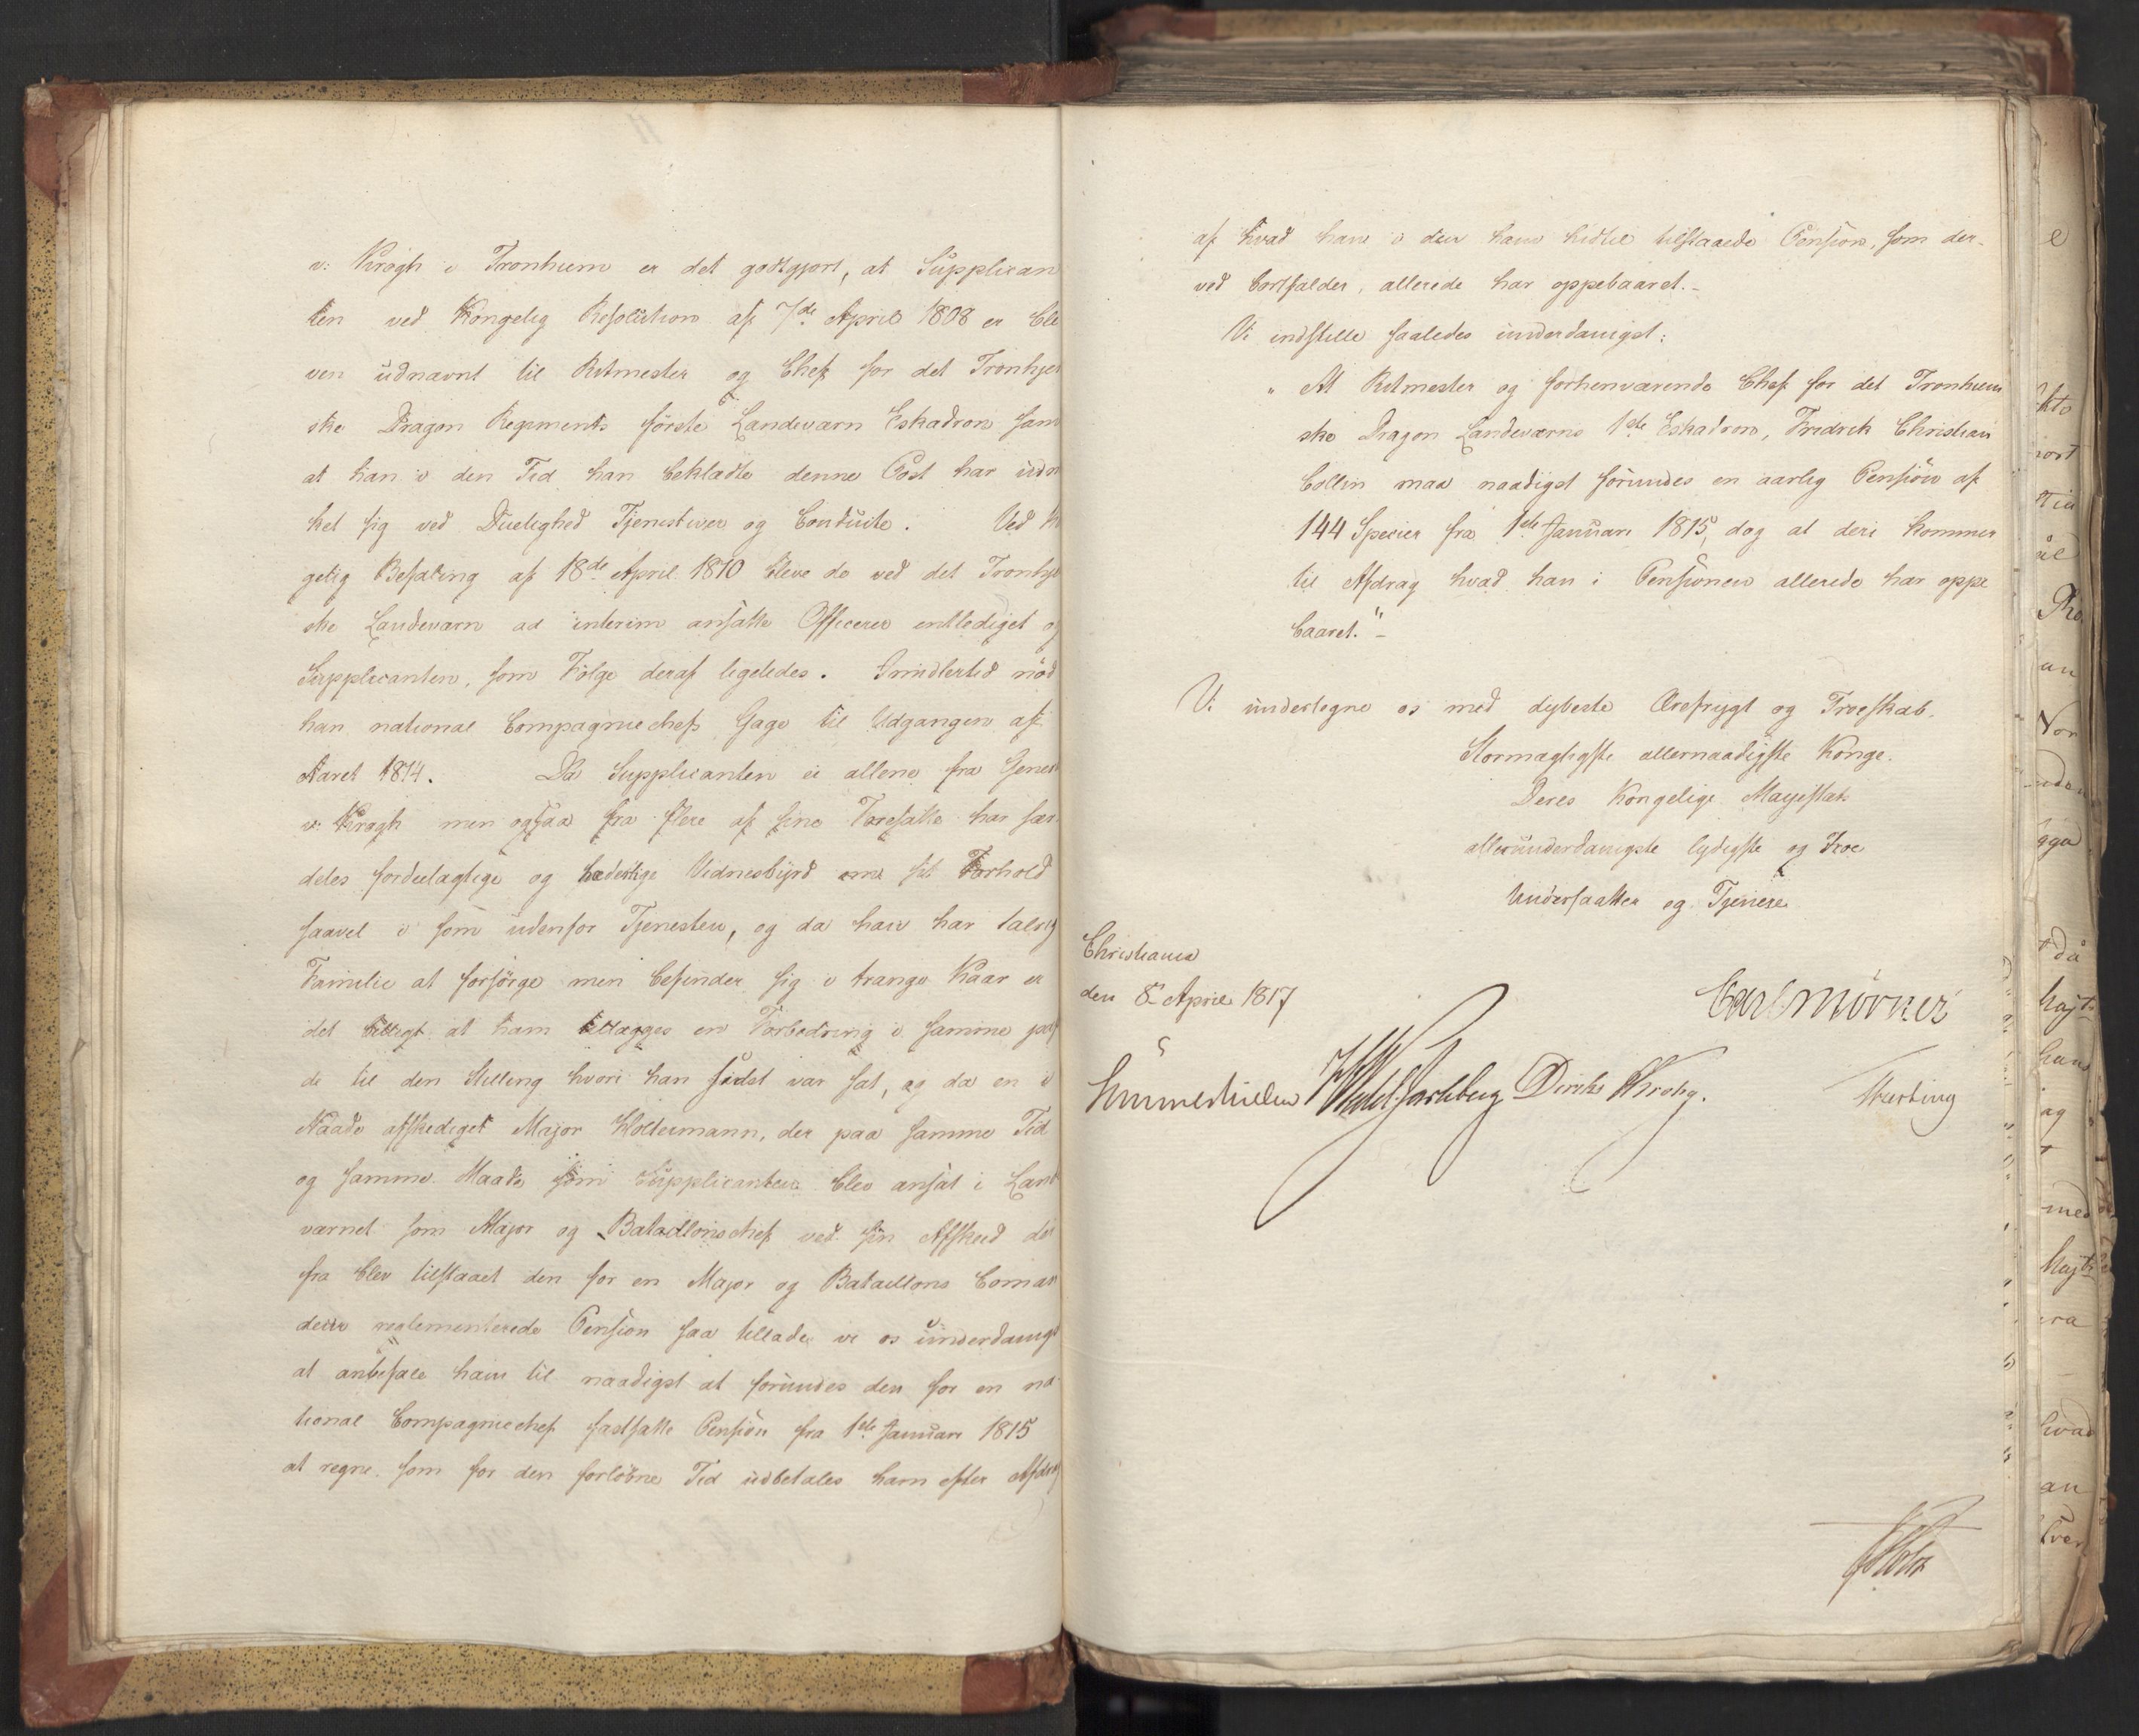 v: Krogh i Tronhiem er det godtgjort, at Supplican
ten ved Kongelig Resolution af 7de April 1808 er ble
ven udnævnt til Ritmester og Chef for det Tronhjem
ske Dragon Regiments første Landeværn Eskadron sam
at han i den Tid han beklædte denne Post har udm
ket sig ved Duelighed Tjenstiver og Conduite. Ved K
gelig Befaling af 18de April 1810 bleve de ved det Tronhje
ske Landeværn ad interim ansatte Officerer entlediget og
Supplicanten, som Følge deraf ligeledes. Imidlertid nød
han national Compagniechefs Gage til Udgangen af
Aaret 1814. Da Supplicanten ei allene fra Gener
v: Krogh men ogsaa fra flere af sine Foresatte har sær
deles fordeelagtige og hæderlige Vidnesbyrd om sit Forhold
saavel i som udenfor Tjenesten, og da han har talrig
Familie at forsørge men befinder sig i trange Kaar er
det billigt at ham tillægges en Forbedring i samme
de til den Stilling hvori han sidst var sat, og da en i
Naade afskediget Major Holtermann, der paa samme Tid
og samme Maade som Supplicanten blev ansat i Land
værnet som Major og Bataillonschef ved sin Afskeed der
fra blev tilstaaet den for en Major og Bataillons Coman
deur reglementerede Pension saa tillade vi os underdanigst
at anbefale ham til naadigst at forundes den for en na
tional Compagniechef fastsatte Pension fra 1ste Januari 1815
at regne. som for den forløbne Tid udbetales ham efter Afdrag
af hvad han i den ham hidtil tilstaaede Pension, som der-
ved bortfalder, allerede har oppebaaret.-
Vi indstille saaledes underdanigst:
"At Ritmester og forhenværende Chef for det Tronhiem
ske Dragon Landeværns 1ste Eskadron, Fredrik Christian
Collin maa naadigst forundes en aarlig Pension af
144 Specier fra 1ste Januari 1815, dog at deri kommer
til Afdrag hvad han i Pensionen allerede har oppe
baaret."-
Vi undertegne os med dybeste Ærefrygt og Troeskab.
Stormægtigste allernaadigste Konge.
Deres Kongelige Majestæts
allerunderdanigste lydigste og Troe
Undersaatter og Tjenere
Christiania
den 8de April 1817
Carl Mörner
Sommerhielm Wedel Jarlsberg Diriks Krohg.
Hærting
Holst